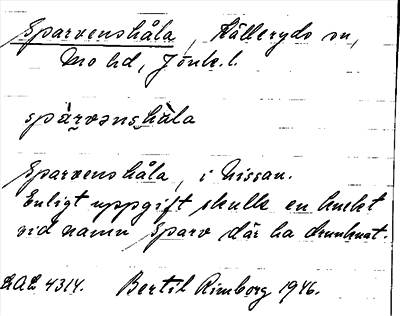 Sparvenshåla, Kålleryds sn,
Mo hd, Jönk. l.
spàrvənshàla
Sparvenshåla, i Nissan.
Enligt uppgift skulle en knekt
vid namn Sparv där ha drunknat.
4314. Bertil Rimborg 1946.